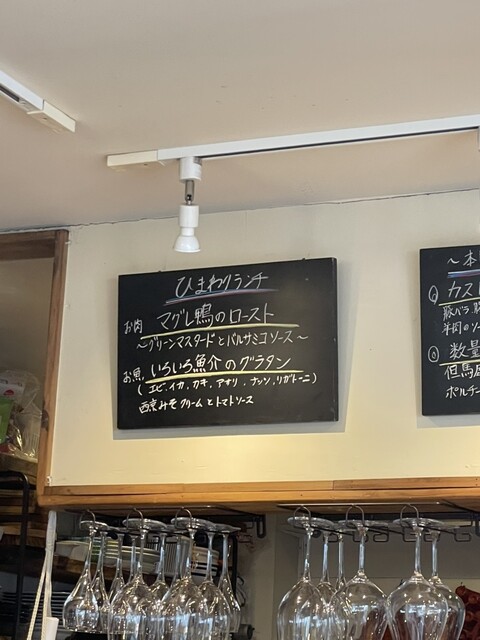 ひまわりランチ
お肉 マグレ鴨のロースト
～グリーンマスタードとバルサミコソース～
お魚 いろいろ魚介のグラタン
(エビ、イカ、カキ、アサリ、ナッツ、リガトーニ)
西京みそクリームとトマトソース
～本
カスレ
豚バラ、豚
羊肉のソー
数量
但馬
ポルチー